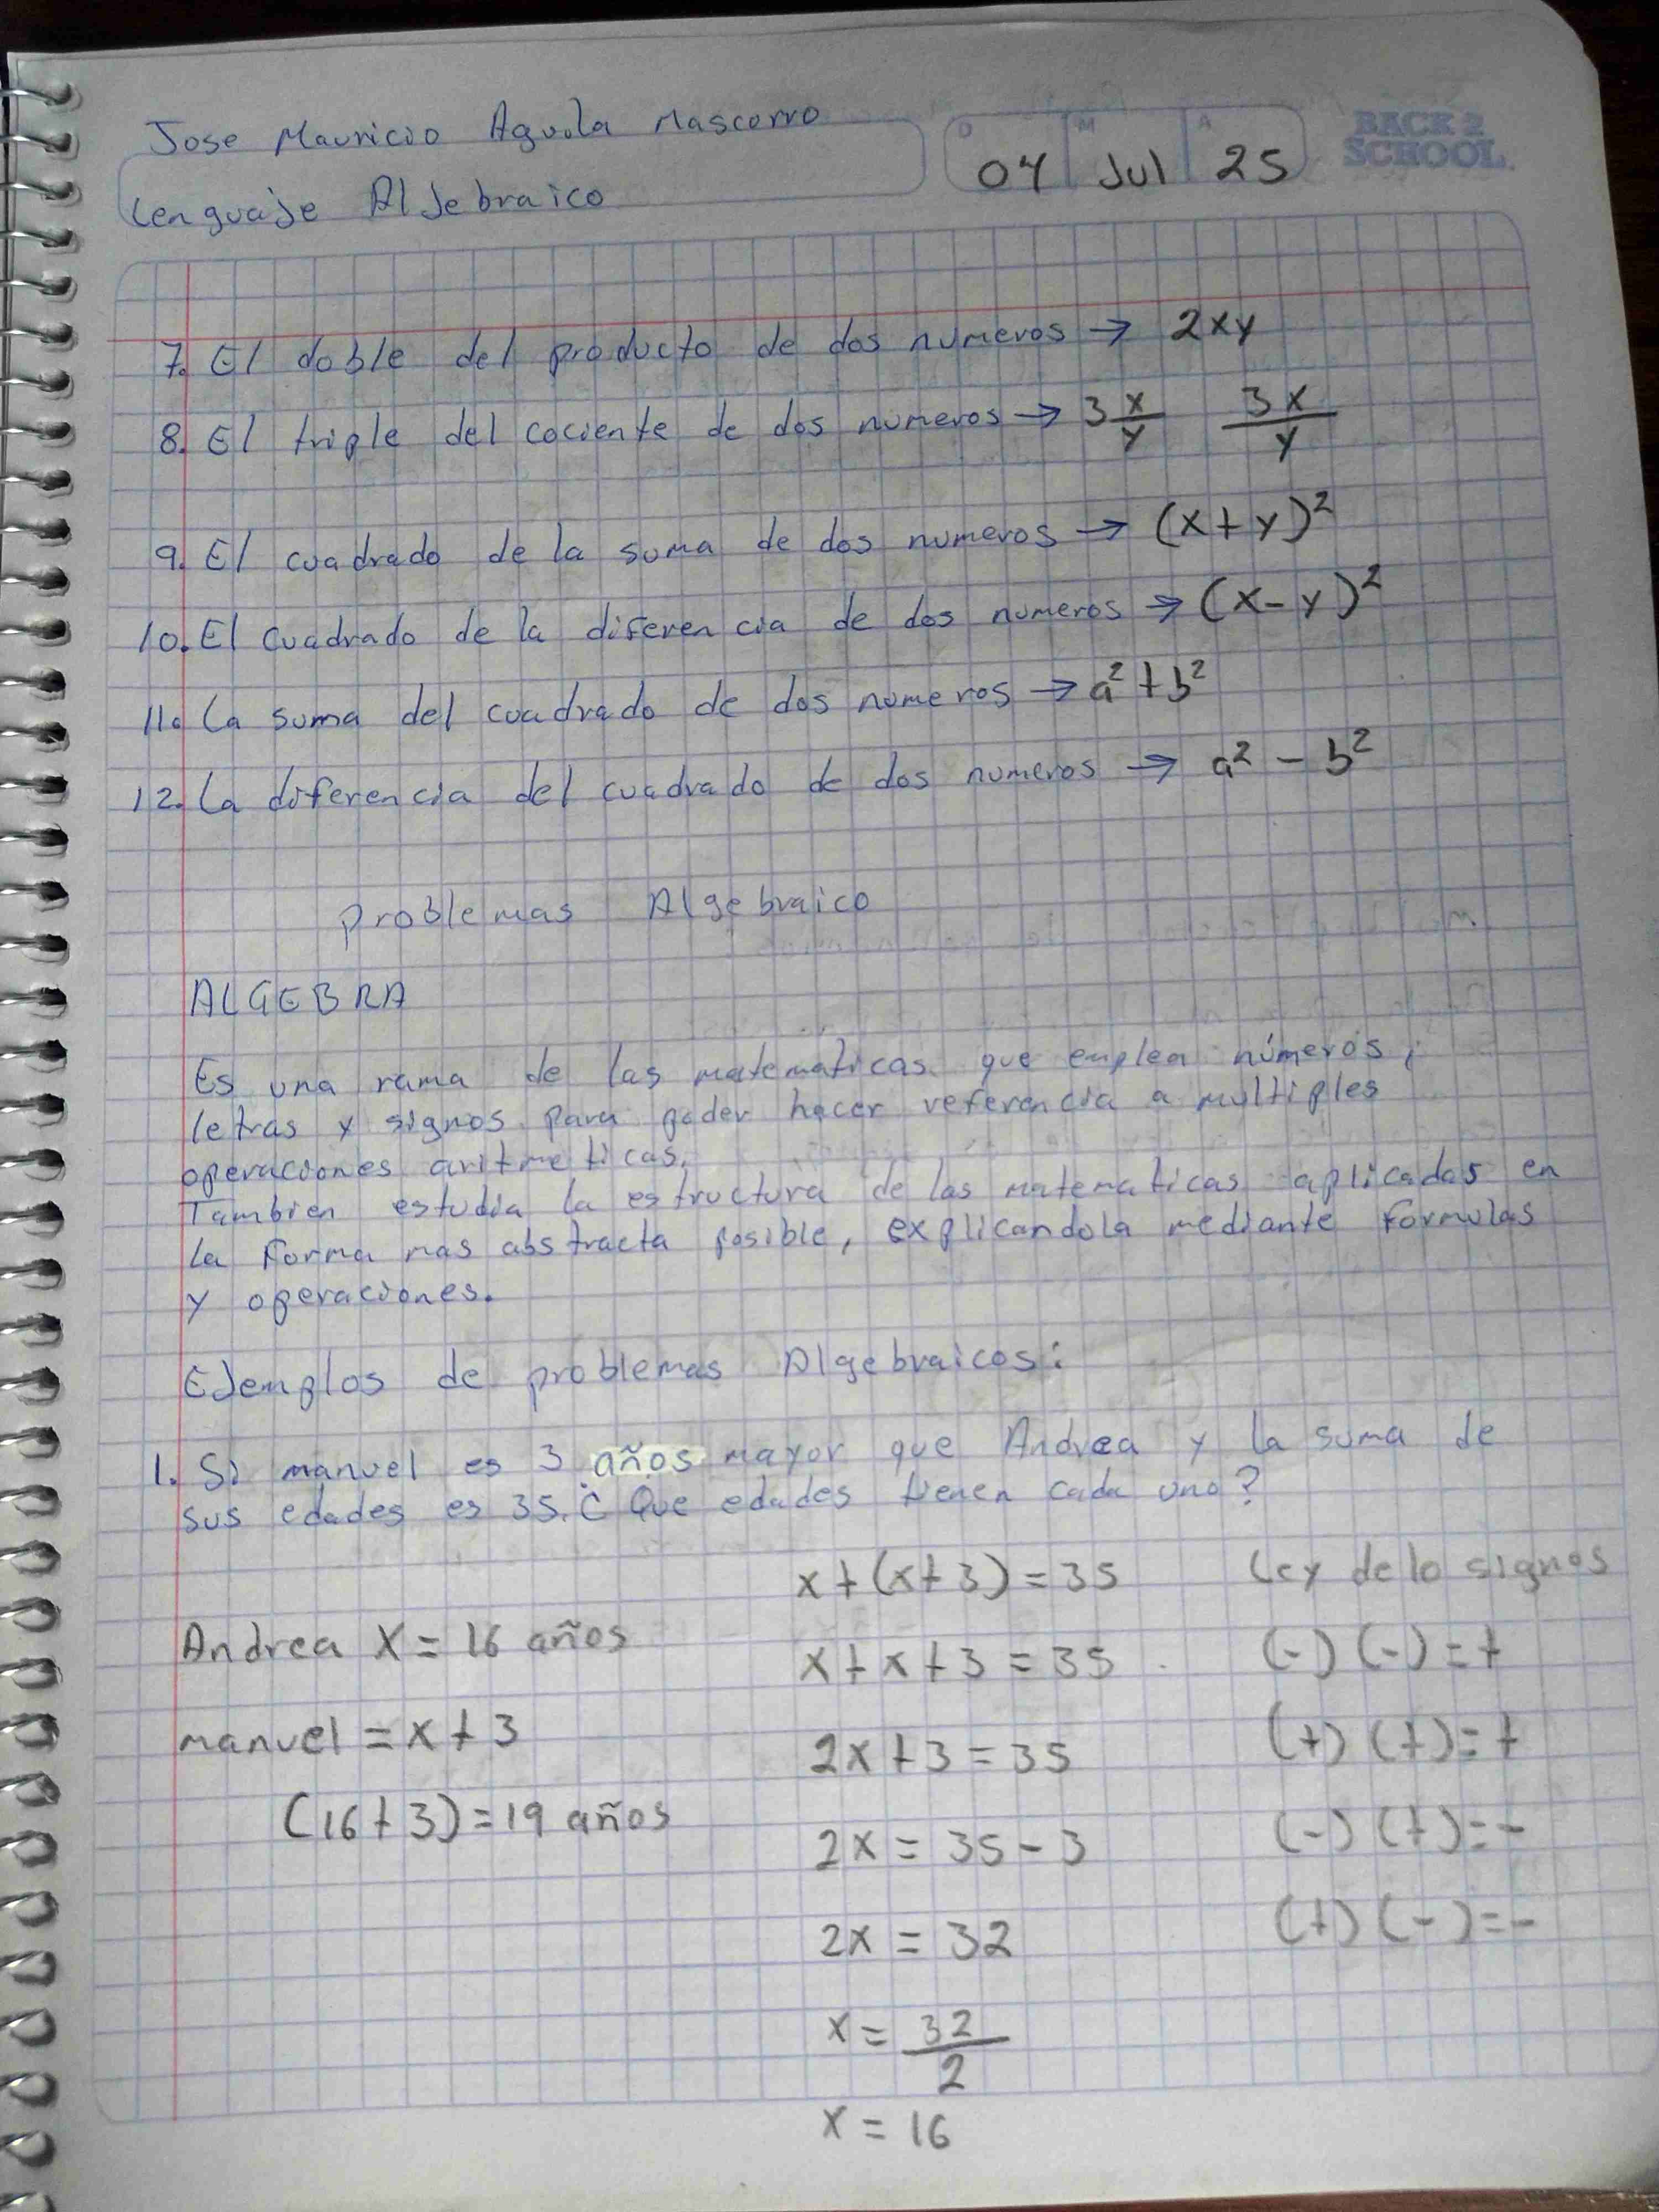 Jose Mauricio Aguila Mascorro
D M A
04 Jul 25
BACK 2
SCHOOL
Lenguaje AlJebraico
7. El doble del producto de dos numeros → 2xy
8. El triple del cociente de dos numeros → 3 x/y 3x/y
9. El cuadrado de la suma de dos numeros → (x+y)²
10. El cuadrado de la diferencia de dos numeros → (x-y)²
11. La suma del cuadrado de dos numeros → a²+b²
12. La diferencia del cuadrado de dos numeros → a² - b²
problemas Algebraico
ALGEBRA
Es una rama de las matematicas que emplea números,
letras y signos para poder hacer referencia a multiples
operaciones aritmeticas.
Tambien estudia la estructura de las matematicas aplicadas en
la forma mas abstracta posible, explicandola mediante formulas
y operaciones.
EJemplos de problemas Algebraicos:
1. Si manuel es 3 años mayor que Andrea y la suma de
sus edades es 35. ¿ Que edades tienen cada uno?
x+(x+3)=35 Ley de lo signos
Andrea X = 16 años x+x+3=35 (-) (-) = +
manuel = x+3 2x+3=35 (+) (+) = +
(16+3)=19 años 2x = 35-3 (-) (+) = -
2x = 32 (+) (-) = -
x = 32/2
x = 16